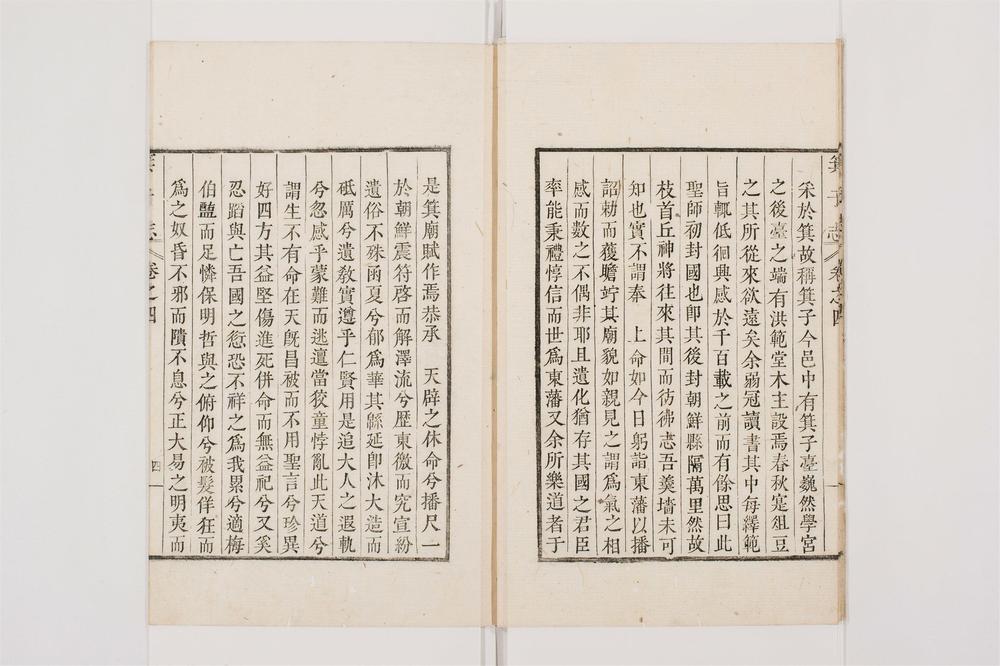 箕子志 卷之四
采於箕故稱箕子今邑中有箕子臺巍然學宮
之後臺之端有洪範堂木主設焉春秋寔俎豆
之其所從來欲遠矣余弱冠讀書其中每繹範
旨輒低徊興感於千百載之前而有餘思曰此
聖師初封國也即其後封朝鮮縣隔萬里然故
枝首丘神將往來其間而彷彿志吾羹墻未可
知也實不謂奉 上命如今日躬詣東藩以播
詔勅而獲瞻竚其廟貌如親見之謂爲氣之相
感而數之不偶非耶且遺化猶存其國之君臣
率能秉禮惇信而世爲東藩又余所樂道者于
是箕廟賦作焉恭承 天辟之休命兮播尺一
於朝鮮震符啓而解澤流兮歷東徼而究宣紛
遺俗不殊函夏兮郁爲華其緜延卽沐大造而
砥厲兮遺敎實遵乎仁賢用是追大人之遐軌
兮忽感乎蒙難而逃邅當狡童悖亂此天道兮
謂生不有命在天旣昌被而不用聖言兮珍異
好四方其益堅傷進死併命而無益祀兮又奚
忍蹈與亡吾國之愆恐不祥之爲我累兮適梅
伯醢而足憐保明哲與之俯仰兮被髮佯狂而
爲之奴昏不邪而隤不息兮正大易之明夷而
箕子志 卷之四 四